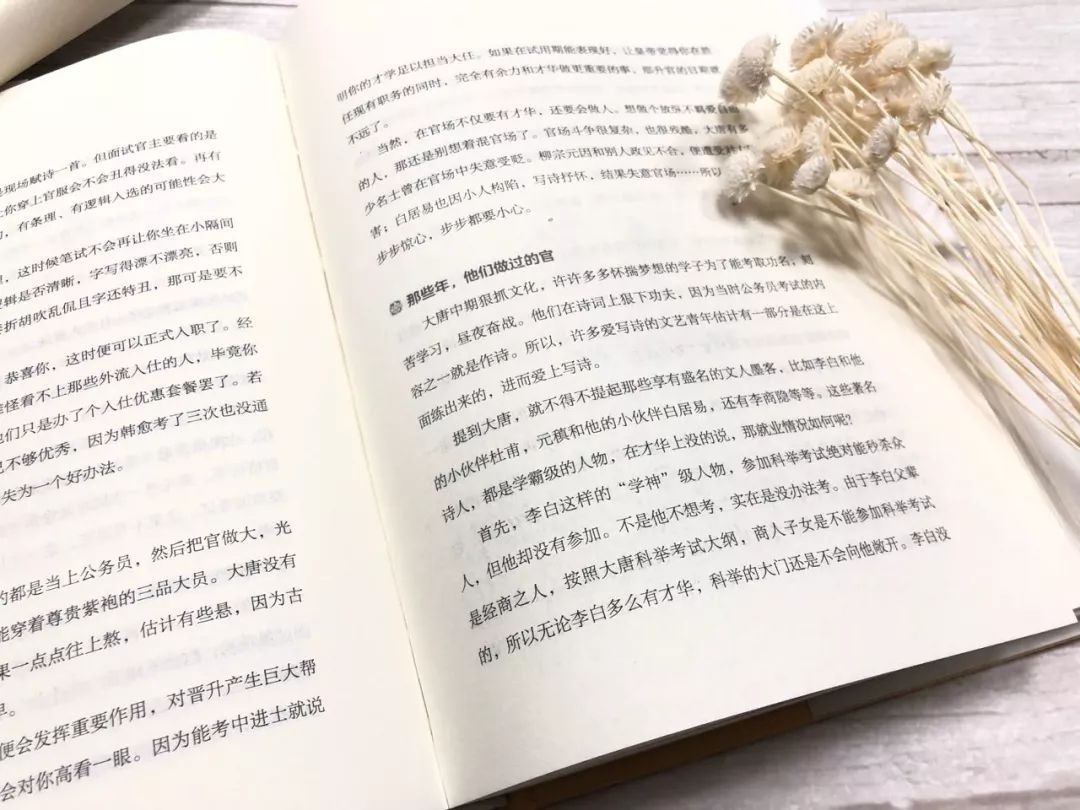 是现场赋诗一首。但面试官主要看的是
让你穿上官服会不会丑得没法看。再有
的，有条理、有逻辑入选的可能性会大
，这时候笔试不会再让你坐在小隔间
逻辑是否清晰，字写得漂不漂亮，否则
奏折胡吹乱侃且字还特丑，那可是要不
恭喜你，这时便可以正式入职了。经
难怪看不上那些外流入仕的人，毕竟你
他们只是办了个入仕优惠套餐罢了。若
己不够优秀，因为韩愈考了三次也没通
失为一个好办法。
的都是当上公务员，然后把官做大，光
能穿着尊贵紫袍的三品大员。大唐没有
果一点点往上熬，估计有些悬，因为古
早。
便会发挥重要作用，对晋升产生巨大帮
会对你高看一眼。因为能考中进士就说
明你的才学足以担当大任。如果在试用期能表现好，让皇帝觉得你在胜
任现有职务的同时，完全有余力和才华做更重要的事，那升官的日期就
不远了。
当然，在官场不仅要有才华，还要会做人。想做个放浪不羁爱自
的人，那还是别想着混官场了。官场斗争很复杂，也很残酷，大唐有多
少名士曾在官场中失意受贬。柳宗元因和别人政见不合，便遭受
害；白居易也因小人构陷，写诗抒怀，结果失意官场……所以
步步惊心，步步都要小心。
那些年，他们做过的官
大唐中期狠抓文化，许许多多怀揣梦想的学子为了能考取功名，刻
苦学习，昼夜奋战。他们在诗词上狠下功夫，因为当时公务员考试的内
容之一就是作诗。所以，许多爱写诗的文艺青年估计有一部分是在这上
面练出来的，进而爱上写诗。
提到大唐，就不得不提起那些享有盛名的文人墨客，比如李白和他
的小伙伴杜甫，元稹和他的小伙伴白居易，还有李商隐等等。这些著名
诗人，都是学霸级的人物，在才华上没的说，那就业情况如何呢？
首先，李白这样的“学神”级人物，参加科举考试绝对能秒杀众
人，但他却没有参加。不是他不想考，实在是没办法考。由于李白父辈
是经商之人，按照大唐科举考试大纲，商人子女是不能参加科举考试
的，所以无论李白多么有才华，科举的大门还是不会向他敞开。李白没